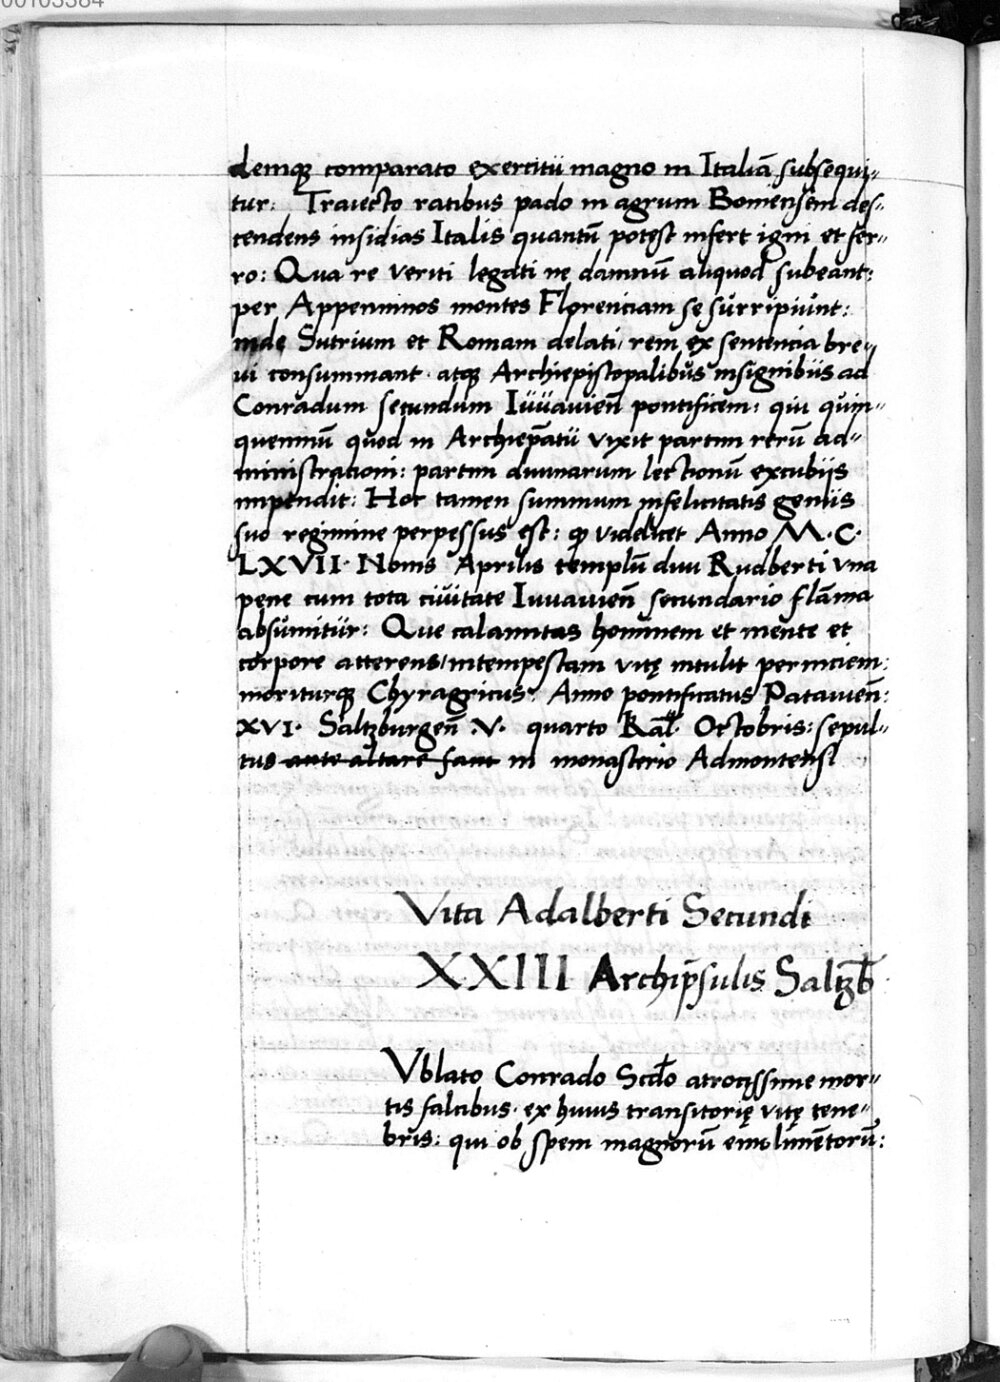 00103384
demq̨ comparato exercitū magno in Italiā subsequi„
tur: Traiecto ratibus pado in agrum Boniensem des„
cendens insidias Italis quantū potest infert igni et fer„
ro: Qua re veriti legati ne damnū aliquod subeant:
per Appenninos montes Florenciam se surripiunt:
inde Sutrium et Romam delati, rem ex sentencia bre„
ui consummant. atq̨ Archiepiscopalibus insignibus ad
Conradum secundum Iuuauieñ pontificem: qui quin„
quenniū quod in Archiep̄atu vixit partim rerū ad„
ministracioni: partim diuinarum lectionū excubiis
impendit: Hoc tamen summum infelicitatis genus
suo regimine perpessus est: ꝙ videlicet Anno M.C.
LXVII. Nonis Aprilis templū diui Rudberti vna
pene cum tota ciuitate Iuuauieñ secundario flāma
absumitur: Que calamitas hominem et mente et
corpore atterens, intempestam vitę intulit perniciem:
moriturq̨ Chyragricus: Anno pontificatus Patauieñ:
XVI. Saltzburgeñ .V. quarto Kal̄. Octobris: sepul„
tus ante altare sant in monasterio Admontensi
Vita Adalberti Secundi
XXIII Archip̄sulis Saltzb̄
Vblato Conrado Scdo atrocissime mor„
tis falcibus. ex huius transitorię vitę tene„
bris: qui ob spem magnorū emolimētorū: